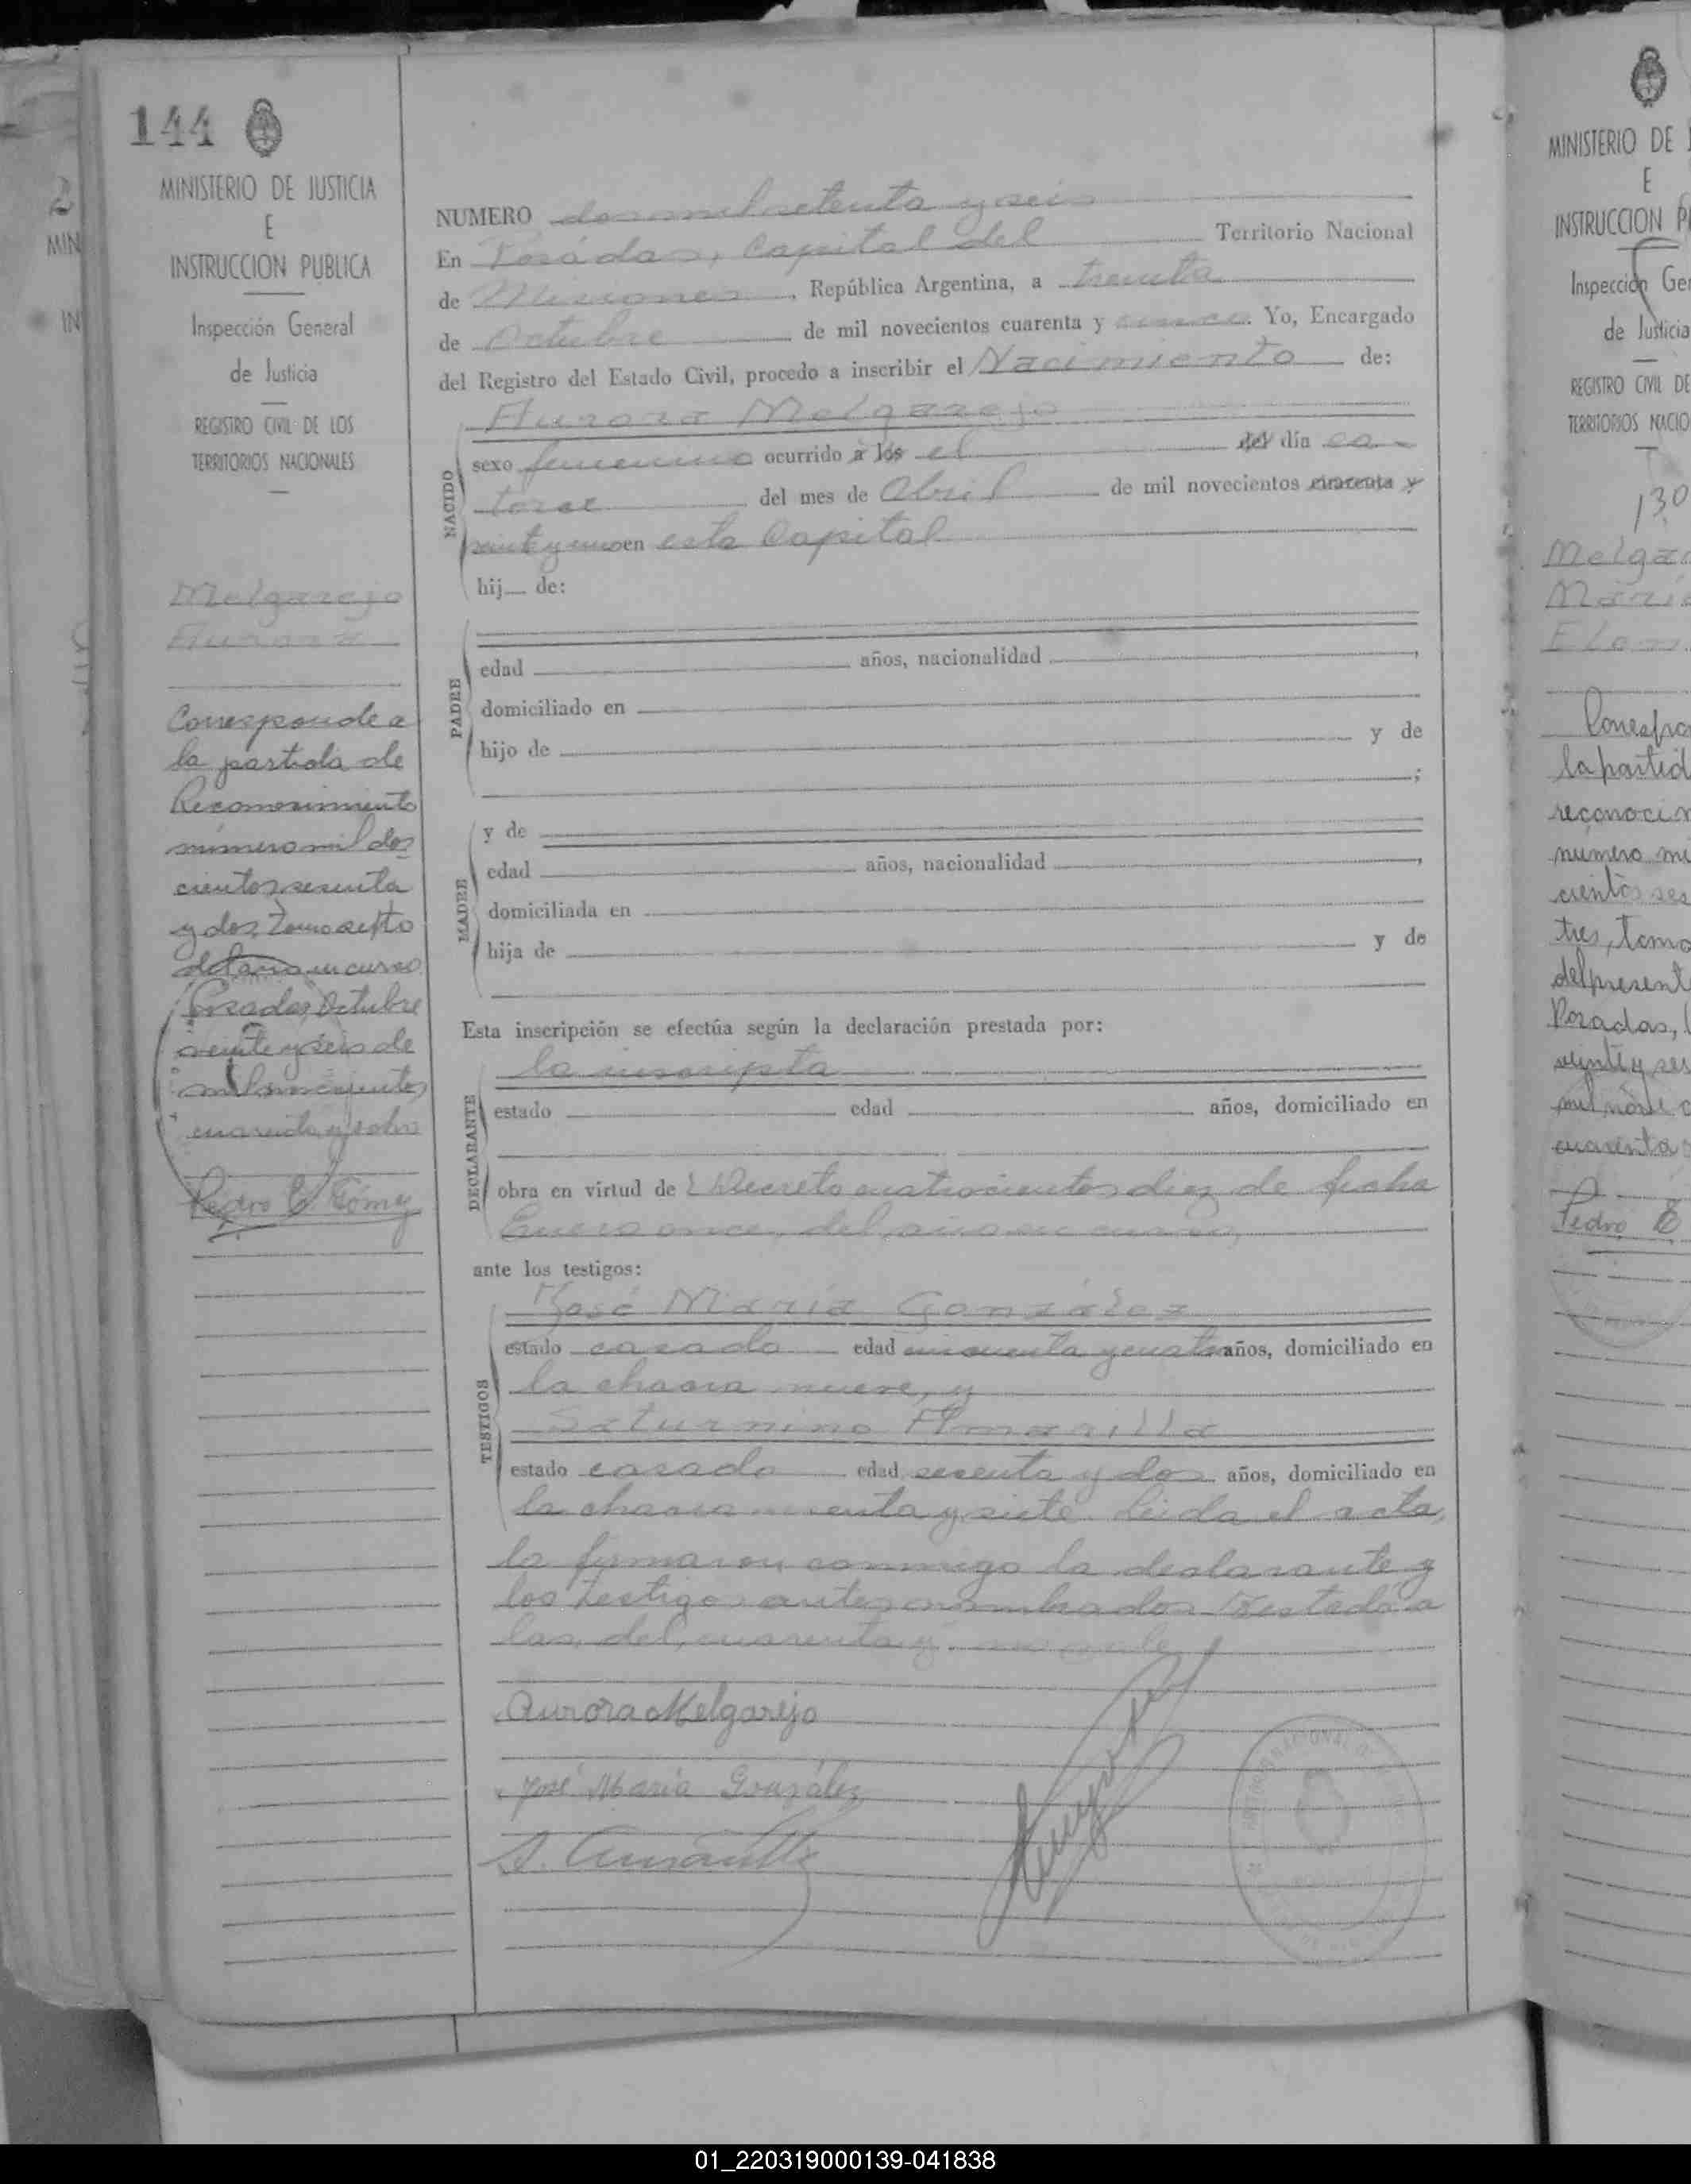 144
MINISTERIO DE JUSTICIA
E
INSTRUCCION PUBLICA
Inspección General
de Justicia
REGISTRO CIVIL DE LOS
TERRITORIOS NACIONALES
Melgarejo
Aurora
Corresponde a
la partida de
Reconocimiento
número mil dos
cientos sesenta
y dos, Tomo sexto
del año en curso.
Posadas, Octubre
veinte y seis de
mil novecientos
cuarenta y ocho
Pedro E. Gómez
NUMERO dos mil setenta y seis
En Posadas, Capital del Territorio Nacional
de Misiones, República Argentina, a treinta
de Octubre de mil novecientos cuarenta y cinco. Yo, Encargado
del Registro del Estado Civil, procedo a inscribir el Nacimiento de:
Aurora Melgarejo
NACIDO
sexo femenino ocurrido a los el del día ca-
torce del mes de Abril de mil novecientos cuarenta y
veinte y uno en esta Capital
hij de:
PADRE
edad años, nacionalidad ,
domiciliado en
hijo de y de
;
MADRE
y de
edad años, nacionalidad ,
domiciliada en
hija de y de
Esta inscripción se efectúa según la declaración prestada por:
DECLARANTE
la inscripta
estado edad años, domiciliado en
obra en virtud de l Decreto cuatrocientos diez de fecha
Enero once, del año en curso,
ante los testigos:
TESTIGOS
José María González
estado casado edad cincuenta y cuatro años, domiciliado en
la chacra nueve, y
Saturnino Amarilla
estado casado edad sesenta y dos años, domiciliado en
la chacra y siete. Leida el acta,
la firmaron conmigo la declarante y
los testigos antes nombrados. Testado: a
los, del, cuarenta y, no vale
Aurora Melgarejo
José María González
S. Amarilla
MINISTERIO DE
E
INSTRUCCION P
Inspección Ge
de Justicia
REGISTRO CIVIL DE
TERRITORIOS NACIO
130
Melga
María
la partid
reconocim
numero mi
cientos ses
tres, tomo
del present
Posadas,
veinte y ses
cuarenta
Pedro E
01_220319000139-041838